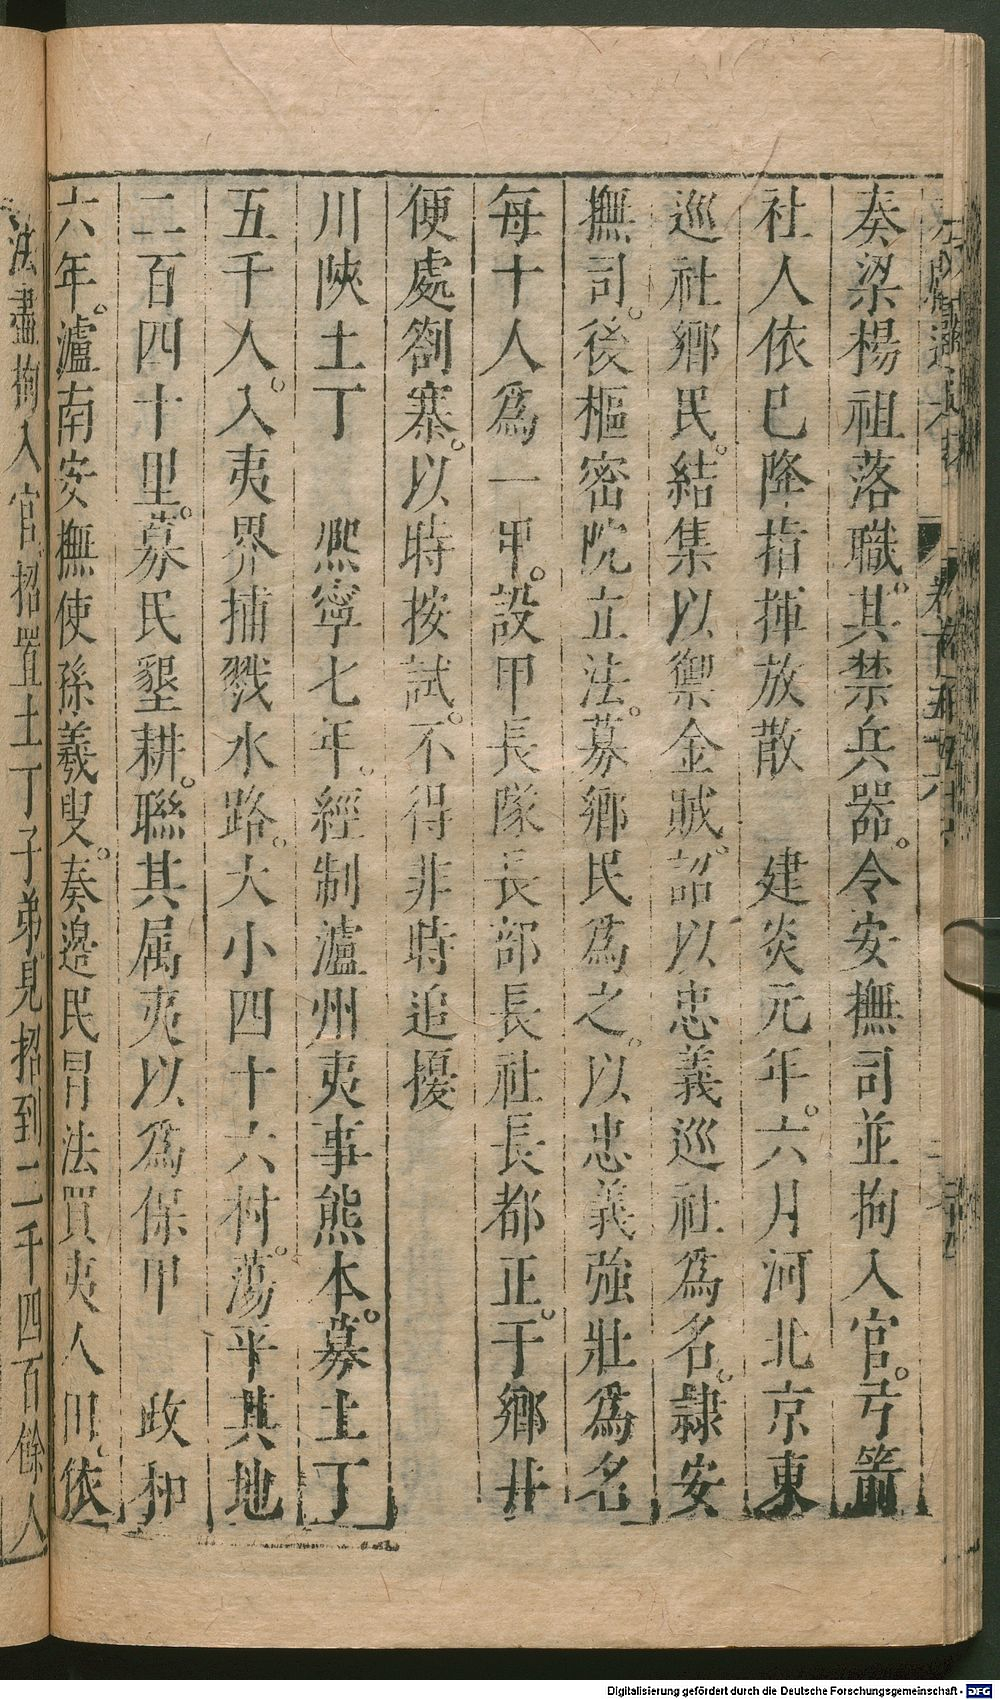 奏梁楊祖落職。其禁兵器。令安撫司並拘入官。弓箭
社人依已降指揮放散　建炎元年。六月河北京東
巡社鄉民。結集以禦金賊。詔以忠義巡社爲名。隷安
撫司。後樞密院立法。募鄉民爲之。以忠義強壯爲名
每十人爲一甲。設甲長隊長部長社長都正。于鄉井
便處劄寨。以時按試。不得非時追擾
川陜土丁　熙寧七年。經制瀘州夷事熊本。募土丁
五千人。入夷界捕戮水路。大小四十六村。蕩平其地
二百四十里。募民墾耕。聯其属夷以爲保甲　政和
六年。瀘南安撫使孫羲叟。奏邊民冒法買夷人田。依
法盡拘入官。招置土丁子弟。見招到二千四百餘人
Digitalisierung gefördert durch die Deutsche Forschungsgemeinschaft - DFG